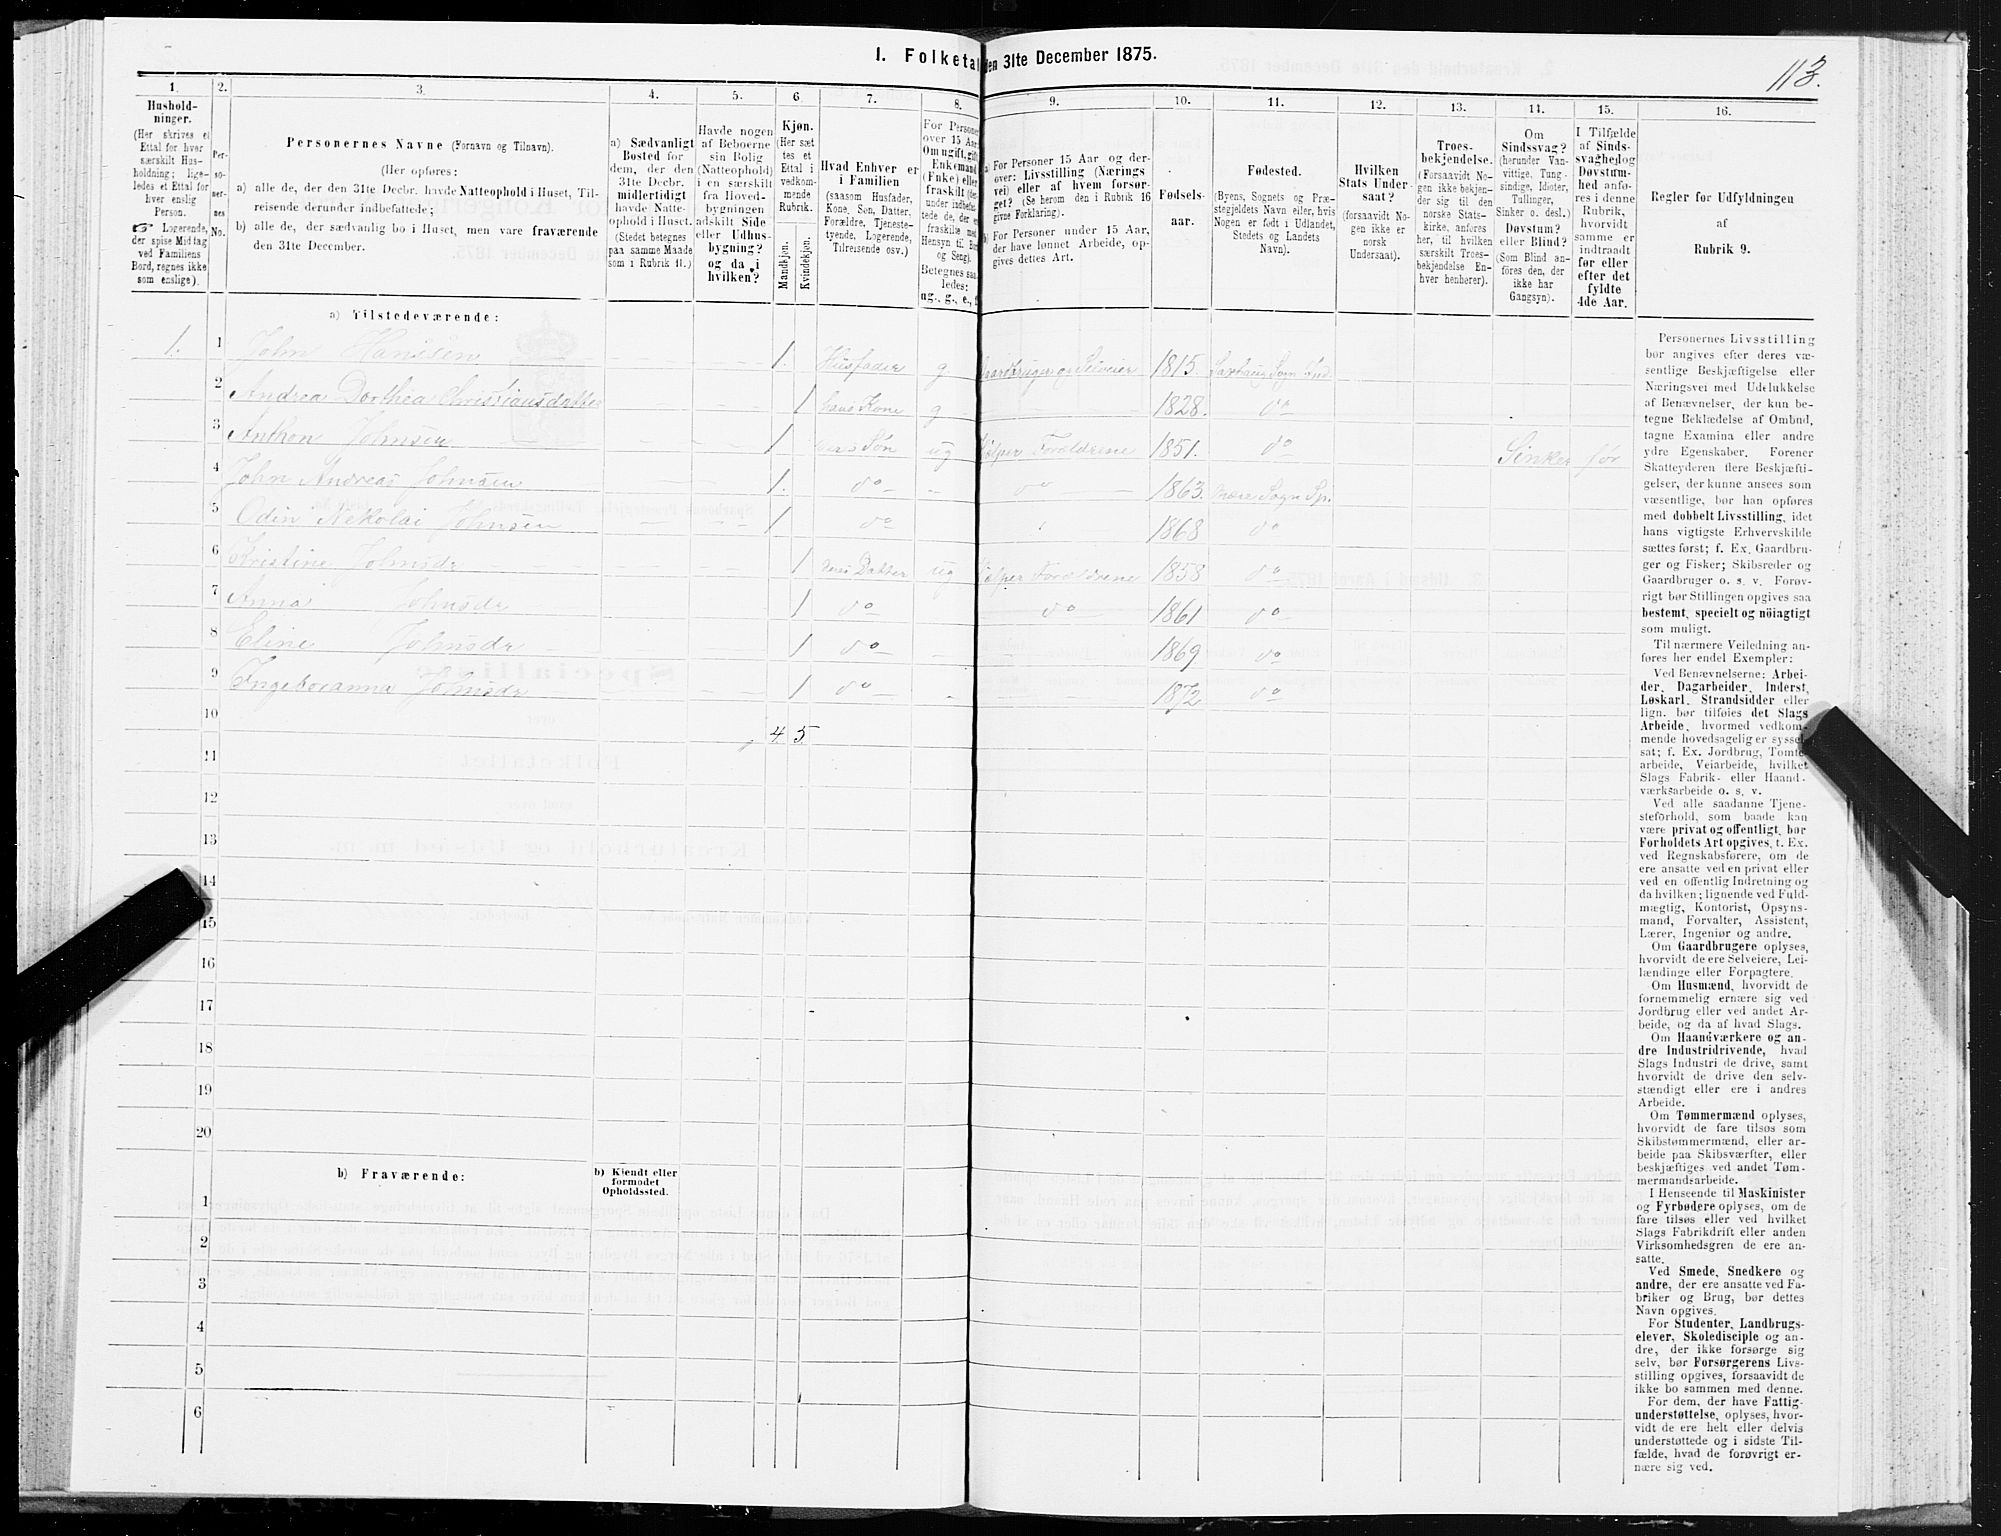 I. Folketal den 31te December 1875.
113.
1.
2.
3.
4.
5.
6
7.
8.
9.
10.
11.
12.
13.
14.
15.
16.
Hushold-
ninger.
(Her skrives et
Ettal for hver
særskilt Hus-
holdning; lige-
ledes et Ettal for
hver enslig
Person.
☞ Logerende,
der spise Middag
ved Familiens
Bord, regnes ikke
som enslige).
Per-
so-
ner-
nes
No.
Personernes Navne (Fornavn og Tilnavn).
(Her opføres:
a) alle de, der den 31te Decbr. havde Natteophold i Huset, Til-
reisende derunder indbefattede;
b) alle de, der sædvanlig bo i Huset, men vare fraværende
den 31te December.
a) Sædvanligt
Bosted for
dem, der den
31te Decbr.
midlertidigt
havde Natte-
ophold i Huset.
(Stedet betegnes
paa samme Maade
som i Rubrik 11.)
Havde nogen
af Beboerne
sin Bolig
(Natteophold)
i en særskilt
fra Hoved-
bygningen
adskilt Side
eller Udhus-
bygning?
og da i
hvilken?
Kjøn.
(Her sæt
tes et
Ettal i
vedkom-
mende
Rubrik.
Mandkjøn.
Kvindekjøn.
Hvad Enhver er
i Familien
(saasom Husfader,
Kone, Søn, Datter,
Forældre, Tjeneste-
tyende, Logerende,
Tilreisende osv.)
For Personer
over 15 Aar:
Om ugift, gift,
Enkemand
(Enke) eller
fraskilt (der-
under indbefat-
tede de, der ere
fraskilte med
Hensyn til Bord
og Seng).
Betegnes saa-
ledes:
ug., g., e., f.
a) For Personer 15 Aar og der-
over: Livsstilling (Nærings
vei) eller af hvem forsør-
get? (Se herom den i Rubrik 16
givne Forklaring).
b) For Personer under 15 Aar,
der have lønnet Arbeide, op-
gives dettes Art.
Fødsels-
aar.
Fødested.
(Byens, Sognets og Præ-
stegjeldets Navn eller, hvis
Nogen er født i Udlandet,
Stedets og Landets
Navn).
Hvilken
Stats Under-
saat?
(forsaavidt No-
gen ikke er
norsk
Undersaat).
Troes-
bekjendelse.
(Forsaavidt No-
gen ikke bekjen-
der sig til den
norske Stats-
kirke, anføres
her, til hvilken
særskilt Troes-
bekjendelse En-
hver henhører).
Om
Sindssvag?
(herunder Van-
vittige, Tung-
sindige, Idioter,
Tullinger,
Sinker o. desl.)
Døvstum?
eller Blind?
(Som Blind an-
føres den, der
ikke har
Gangsyn).
I Tilfælde
af Sinds-
svaghed og
Døvstum-
hed anfø-
res i denne
Rubrik,
hvorvidt
samme er
indtraadt
før eller
efter det
fyldte
4de Aar.
Regler for Udfyldningen
af
Rubrik 9.
a) Tilstedeværende:
1. 1 John Hanssen 1. Husfader g Gaardbruger og Selveier 1815.
2 Andrea Dorthea Christiansdatter 1 hans Kone g 1828. do
3 Anthon Johnsen 1 deres Søn ug Hjelper Forældrene 1851. do Sinker før
4 John Andreas Johnsen 1. do do 1863.
5 Odin Nekolai Johnsen 1 do 1868 do
6 Kristine Johnsdr 1 deres Datter ug Hjelper Forældrene 1858 do
7 Anna Johnsdr 1 do do 1861 do
8 Eline Johnsdr 1 do 1869 do
9 Ingeboranna Johnsdr 1 do 1872 do
10 4 5
11
12
13
14
15
16
17
18
19
20
b) Fraværende:
b) Kjendt eller
formodet
Opholdssted.
1
2
3
4
5
6
Personernes Livsstilling
bør angives efter deres væ-
sentlige Beskjæftigelse eller
Næringsvei med Udelukkelse
af Benævnelser, der kun be-
tegne Beklædelse af Ombud,
tagne Examina eller andre
ydre Egenskaber. Forener
Skatteyderen flere Beskjæfti-
gelser, der kunne ansees som
væsentlige, bør han opføres
med dobbelt Livsstilling, idet
hans vigtigste Erhvervskilde
sættes først; f. Ex. Gaardbru-
ger og Fisker; Skibsreder og
Gaardbruger o. s. v. Forøv-
rigt bør Stillingen opgives saa
bestemt, specielt og nöiagtigt
som muligt.
Til nærmere Veiledning an-
føres her endel Exempler:
Ved Benævnelserne: Arbei-
der, Dagarbeider, Inderst,
Løskarl, Strandsidder eller
lign. bør tilføies det Slags
Arbeide, hvormed vedkom-
mende hovedsagelig er syssel-
sat; f. Ex. Jordbrug, Tomte-
arbeide, Veiarbeide, hvilket
Slags Fabrik- eller Haand-
værksarbeide o. s. v.
Ved alle saadanne Tjene-
steforhold, som baade kan
være privat og offentligt, bør
Forholdets Art opgives, t. Ex.
ved Regnskabsførere, om de
ere ansatte ved en privat eller
ved en offentlig Indretning og
da hvilken; lignende ved Fuld-
mægtig, Kontorist, Opsyns-
mand, Forvalter, Assistent,
Lærer, Ingeniør og andre.
Om Gaardbrugere oplyses,
hvorvidt de ere Selveiere, Lei-
lændinge eller Forpagtere.
Om Husmænd, hvorvidt de
fornemmelig ernære sig ved
Jordbrug eller ved andet Ar-
beide, og da af hvad Slags.
Om Haandværkere og an-
dre Industridrivende, hvad
Slags Industri de drive, samt
hvorvidt de drive den selv-
stændigt eller ere i andres
Arbeide.
Om Tømmermænd oplyses,
hvorvidt de fare tilsøs som
Skibstømmermænd, eller ar-
beide paa Skibsværfter, eller
beskjæftiges ved andet Tøm-
mermandsarbeide.
I Henseende til Maskinister
og Fyrbødere oplyses, om de
fare tilsøs eller ved hvilket
Slags Fabrikdrift eller anden
Virksomhedsgren de ere an-
satte.
Ved Smede, Snedkere og
andre, der ere ansatte ved Fa-
briker og Brug, bør dettes
Navn opgives.
For Studenter, Landbrugs-
elever, Skoledisciple og an-
dre, der ikke forsørge sig
selv, bør Forsørgerens Livs-
stilling opgives, forsaavidt de
ikke bo sammen med denne.
For dem, der have Fattig-
understøttelse, oplyses, hvor-
vidt de ere helt eller delvis
understøttede og i sidste Til-
fælde, hvad de forøvrigt er-
nære sig ved.